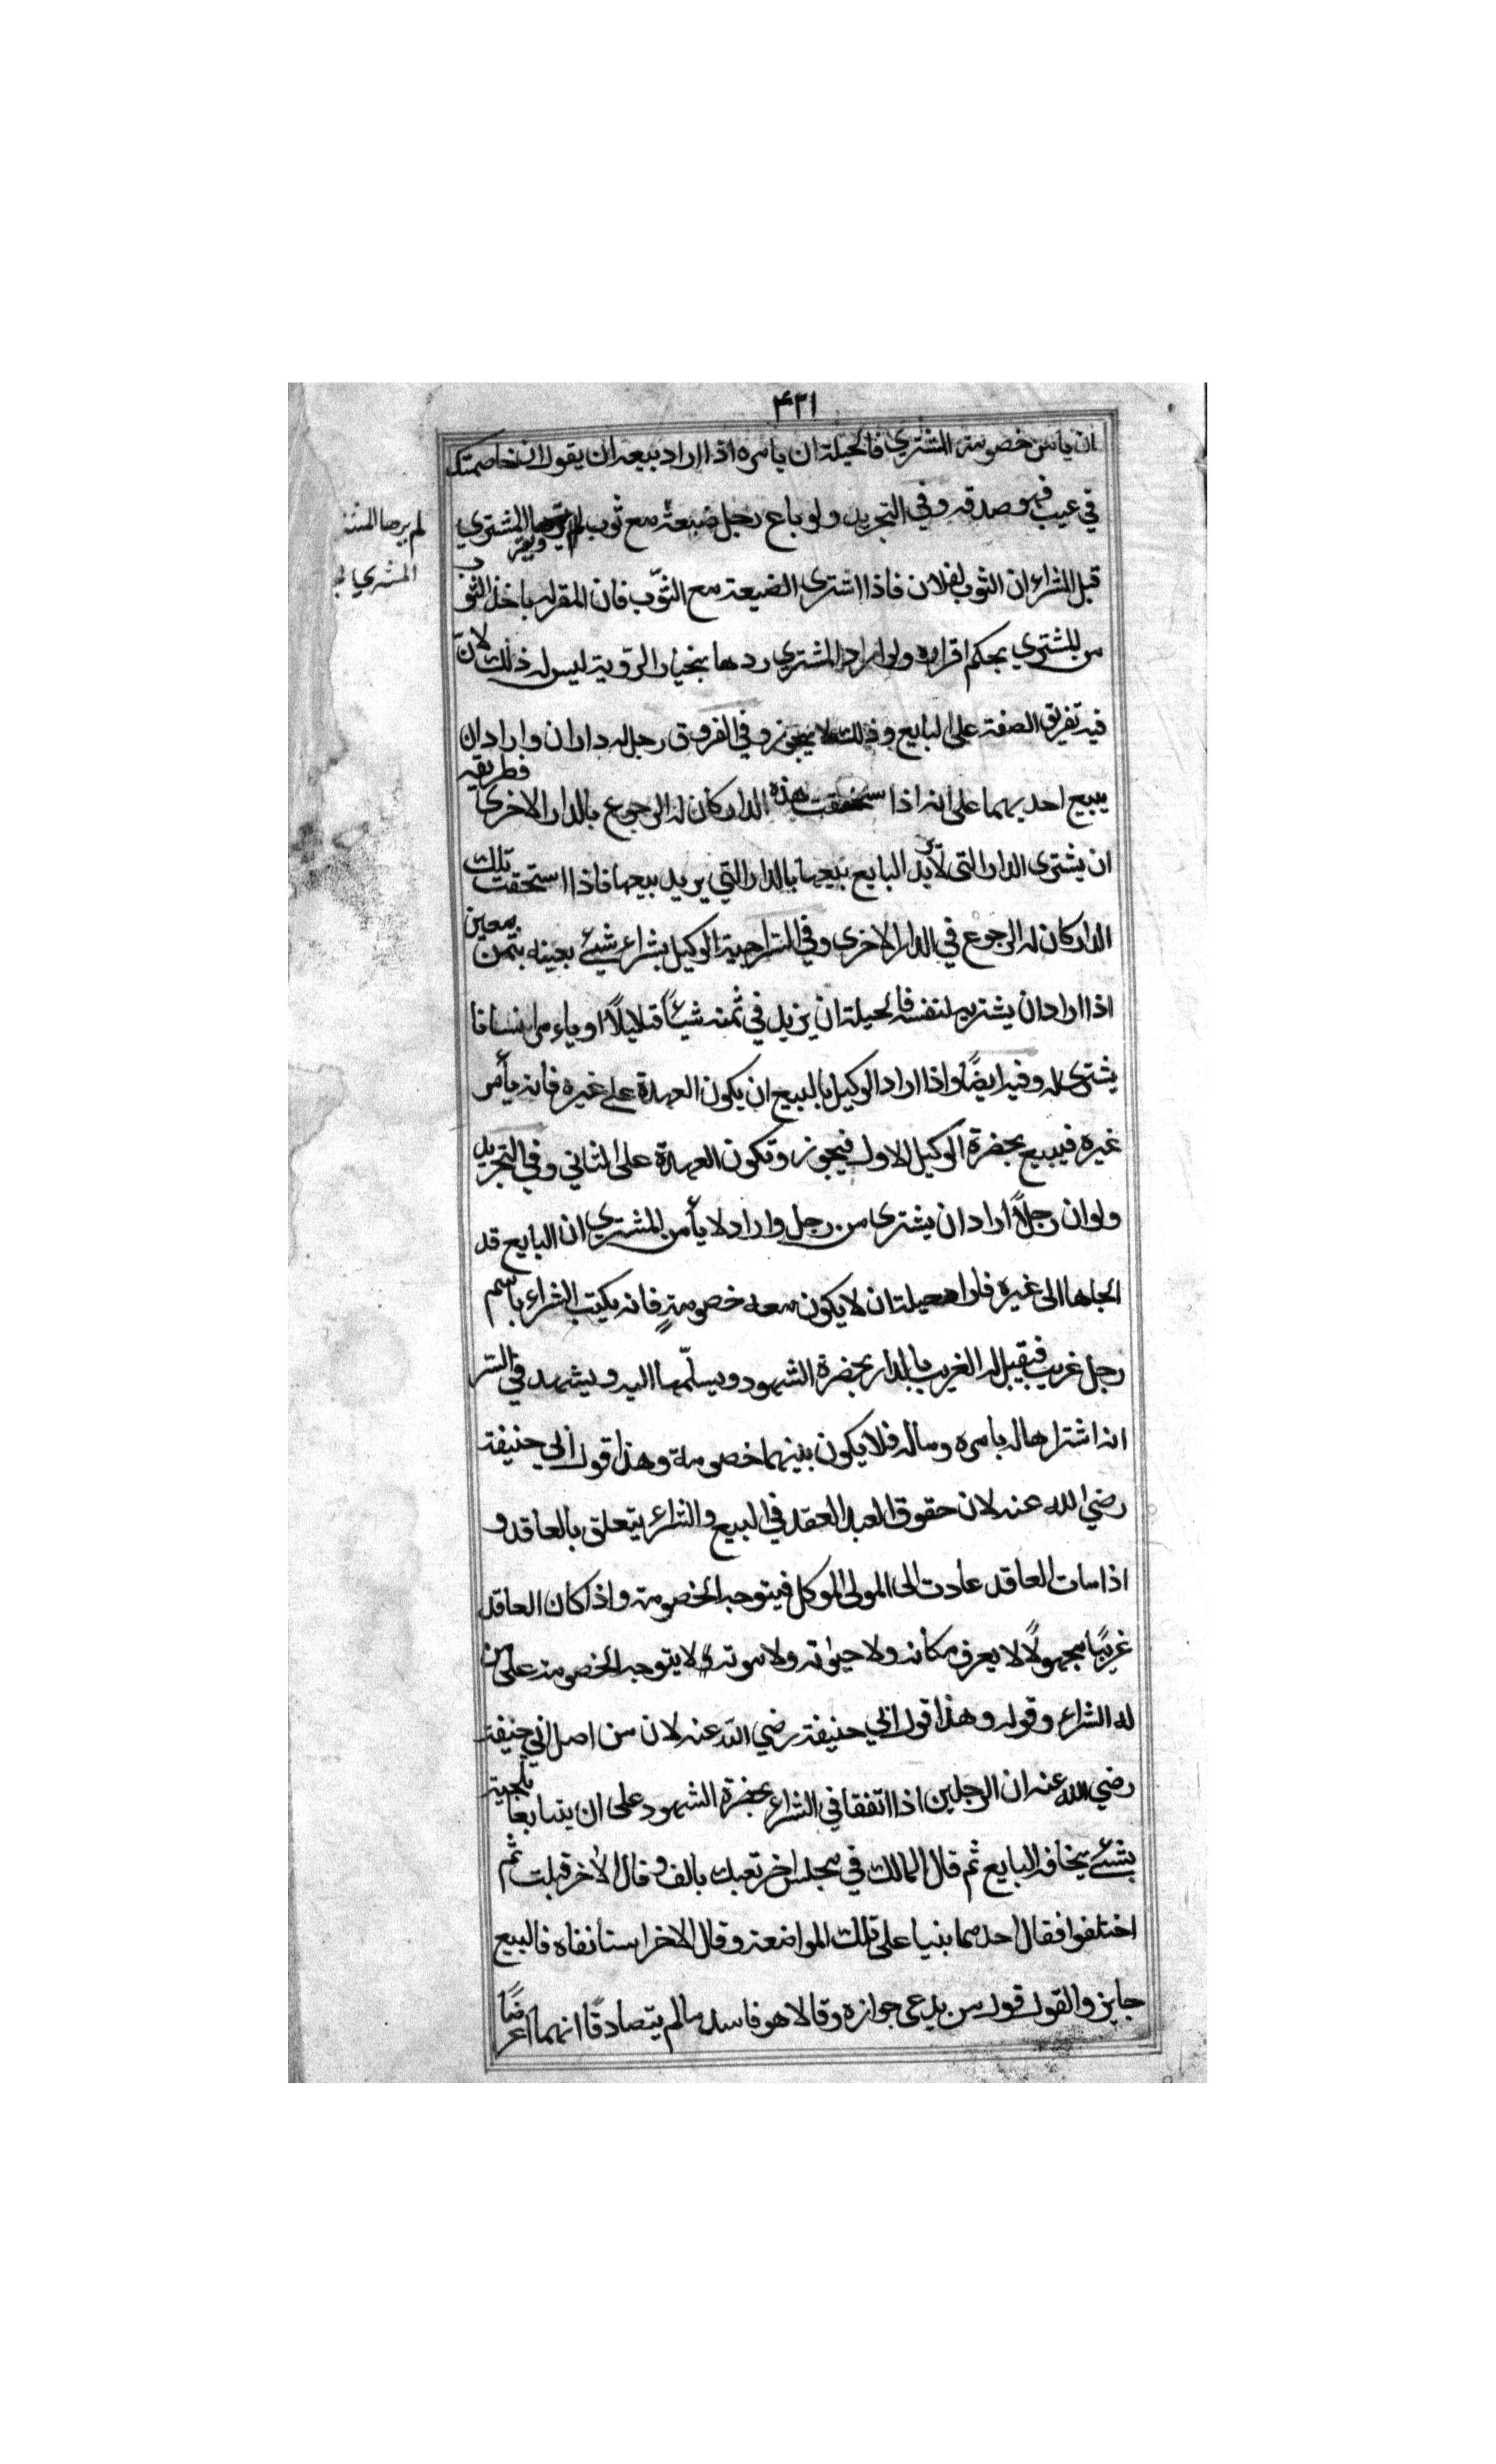 ۴۲۱
ان يامن خصومة المشتري فالحيلة ان يامره اذا اراد بيعه ان يقول ان خاصمتك
في عيب فهو صدقة وفي التجريد ولو باع رجل ضيعة مع ثوب لم يرها المشتري ويقر
قبل الشراء ان الثوب لفلان فاذا اشترى الضيعة مع الثوب فان المقر له ياخذ الثوب
من المشتري بحكم اقراره ولو اراد المشتري ردها بخيار الروية ليس له ذلك لان
فيه تفريق الصفة على البايع وذلك لا يجوز وفي الفروق رجل له داران واراد ان
يبيع احديهما على انه اذا استحقت هذه الدار كان له الرجوع بالدار الاخرى فطريقه
ان يشترى الدار التى لا يريد البايع بيعها بالدار التي يريد بيعها فاذا استحقت تلك
الدار كان له الرجوع في الدار الاخرى وفي السراجية الوكيل بشراء شيئ بعينه بثمن معين
اذا اراد ان يشتريه لنفسه فالحيلة ان يزيد في ثمنه شيئاً قليلاً او يامر انسانا
يشترى له وفيه ايضاً واذا اراد الوكيل بالبيع ان يكون العهدة على غيره فانه يأمر
غيره فيبيع بحضرة الوكيل الاول فيجوز وتكون العهدة على الثاني وفي التجريد
ولو ان رجلاً اراد ان يشترى من رجل واراد لا يأمن المشتري ان البايع قد
الجاها الى غيره فاراد حيلة ان لا يكون معه خصومةٍ فانه يكتب الشراء باسم
رجل غريب فيقبل له الغريب بالدار بحضرة الشهود ويسلّمها اليه ويشهد في السر
انه اشتراها له بامره وماله فلا يكون بينهما خصومة وهذا قول ابي حنيفة
رضي الله عنه لان حقوق العبد العقد في البيع والشراء يتعلق بالعاقد و
اذا مات العاقد عادت الى المولى الموكل فيتوجه الخصومة واذا كان العاقد
غريبًا مجهولاً لا يعرف مكانه ولا حيوته ولا موته لا يتوجه الخصومة على من
له الشراء وقوله وهذا قول ابي حنيفة رضي الله عنه لان من اصل ابي حنيفة
رضي الله عنه ان الرجلين اذا اتفقا في الشراء بحضرة الشهود على ان يتبايعا تلجية
بشيئ يخافه البايع ثم قال المالك في مجلس اخر بعتك بالف وقال الاخر قبلت ثم
اختلفوا فقال احدهما بنيا على تلك المواضعة وقال الاخر استانفاه فالبيع
جايز والقول قول من يدعى جوازه وقالا هو فاسد مالم يتصادقا انهما اعرضا
لم يرها المشتر
المشتري